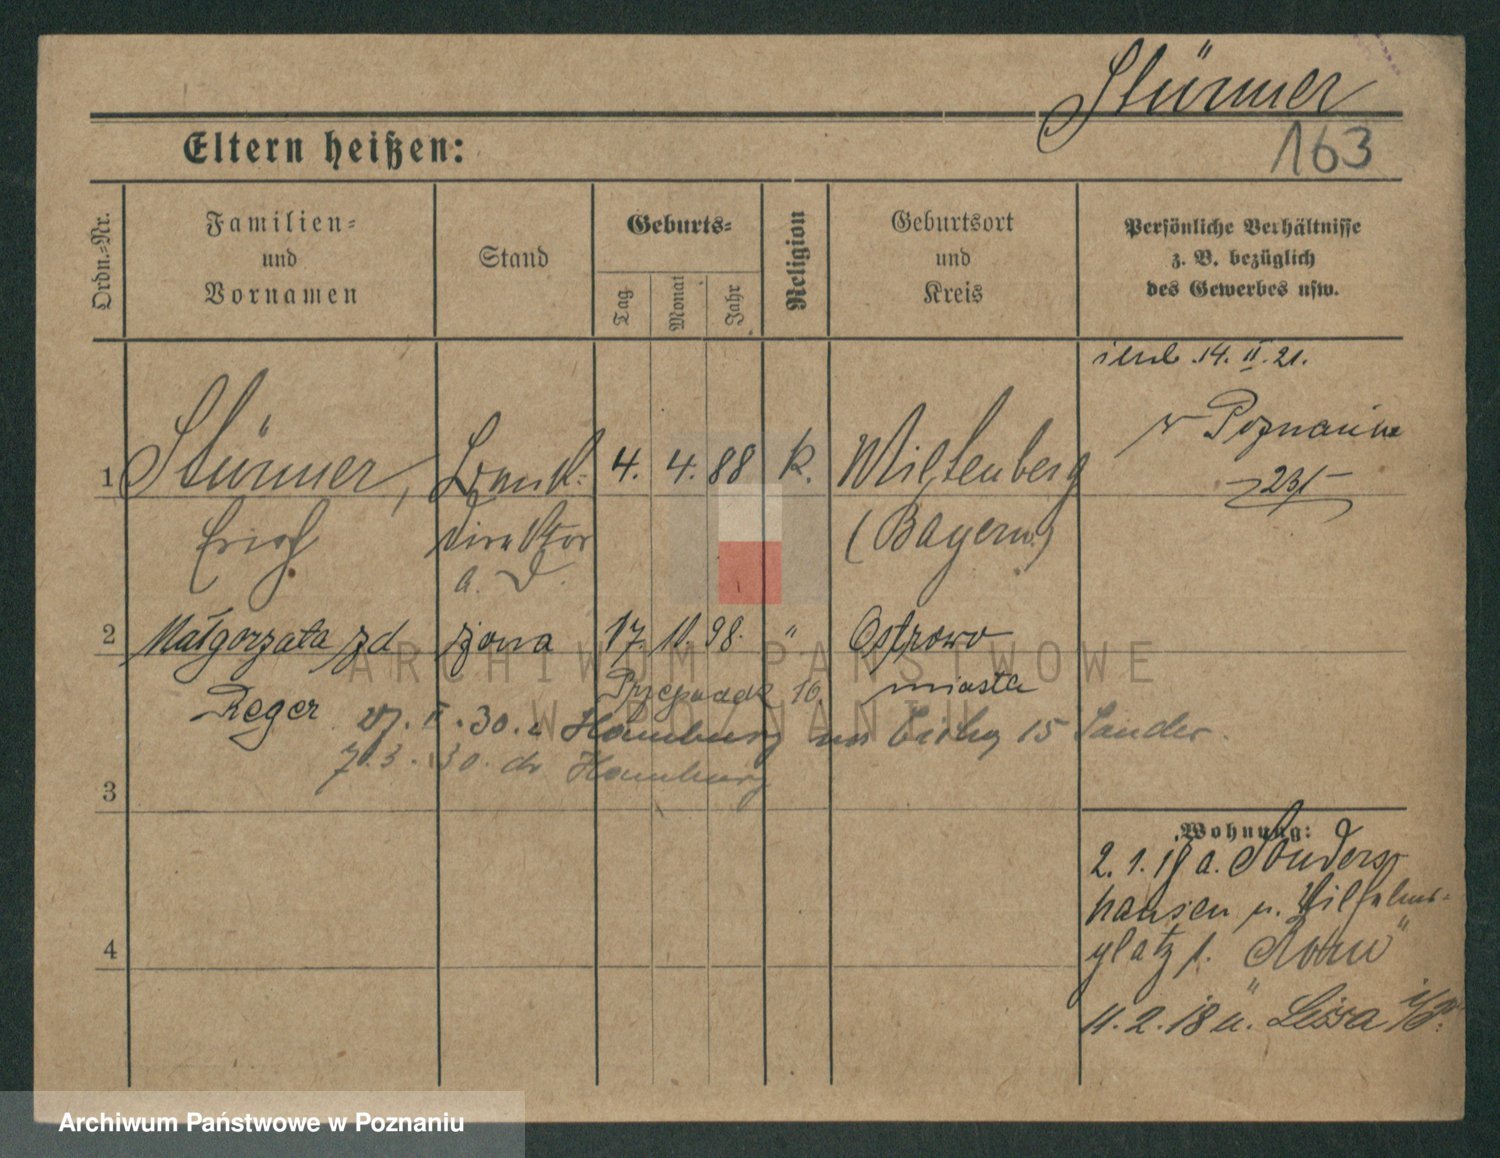 Stürmer
163
Eltern heißen:
Ordn.-Nr.
Familien-
und
Vornamen
Stand
Geburts-
Tag
Monat
Jahr
Religion
Geburtsort
und
Kreis
Persönliche Verhältnisse
z. B. bezüglich
des Gewerbes usw.
14. II. 21.
w Poznaniu
1 Stürmer, 4. 4. 88 k. Miltenberg
Erich direktor (Bayern)
a. D.
2 Małgorzata zd żona 17. 11. 98. " Ostrowo
Reger miasta
II. 30. Hamburg 15
7.3.30. Hamburg
3
4
Wohnung:
2. 1. 18 a. Sonders-
hausen n. Wilhelms-
platz 1.
11. 2. 18 n. Lissa i/P.
ARCHIWUM PAŃSTWOWE
W POZNANIU
Archiwum Państwowe w Poznaniu